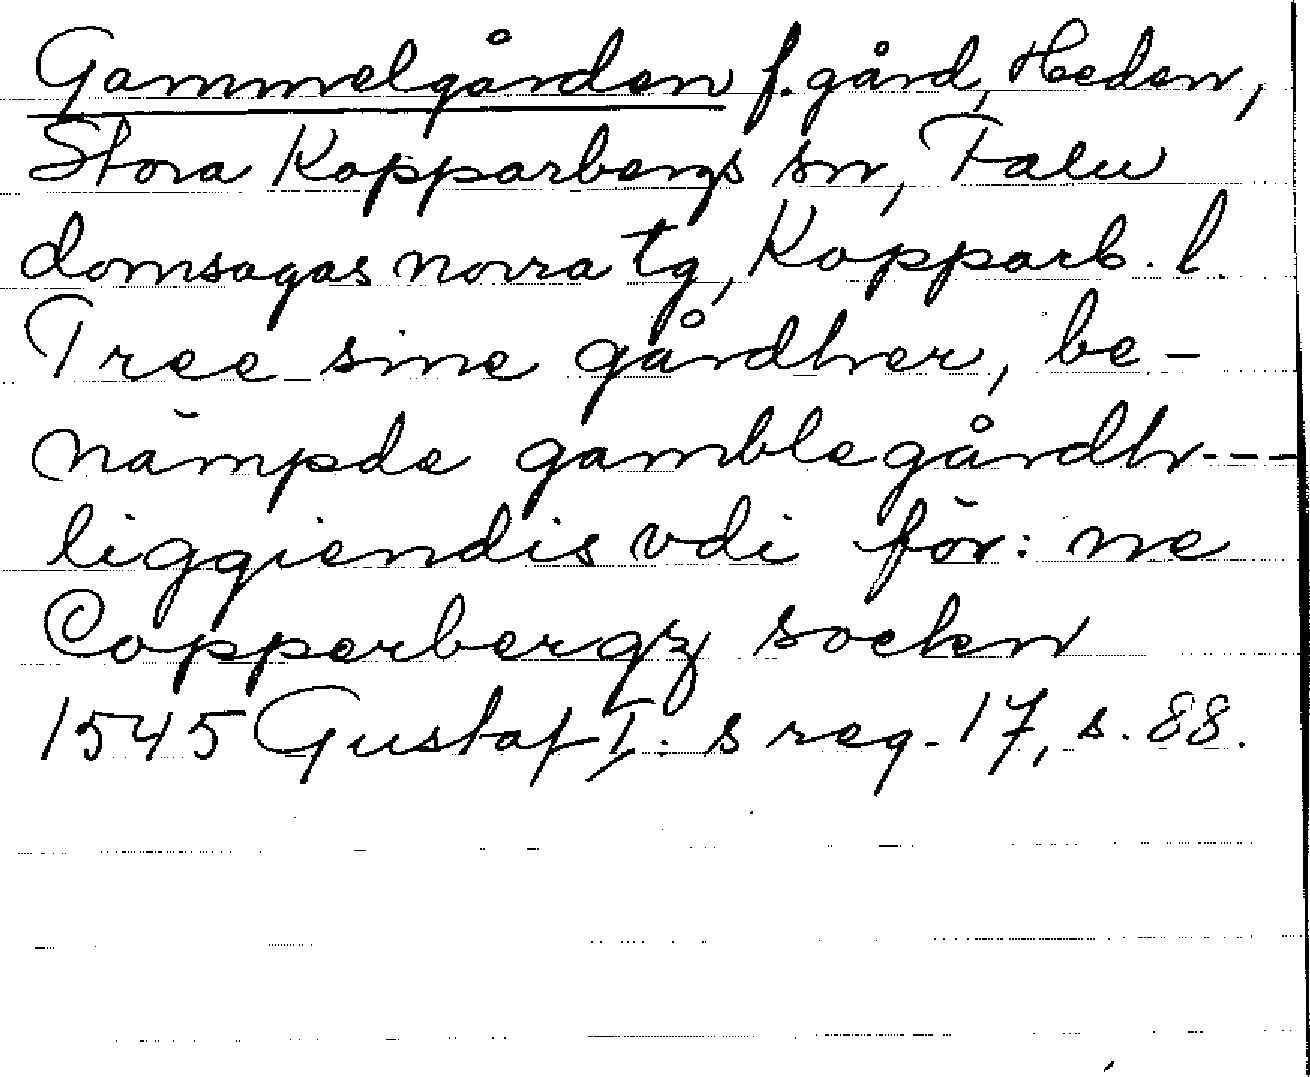 Gammelgården f. gård, Heden,
Stora Kopparbergs sn, Falu
domsagas norra tg, Kopparb. l.
Tree sine gårdher, be-
nämpde gamblegårdh---
liggiendis vdi för: ne
Copperbergz sockn
1545 Gustaf I: s reg. 17, s. 88.